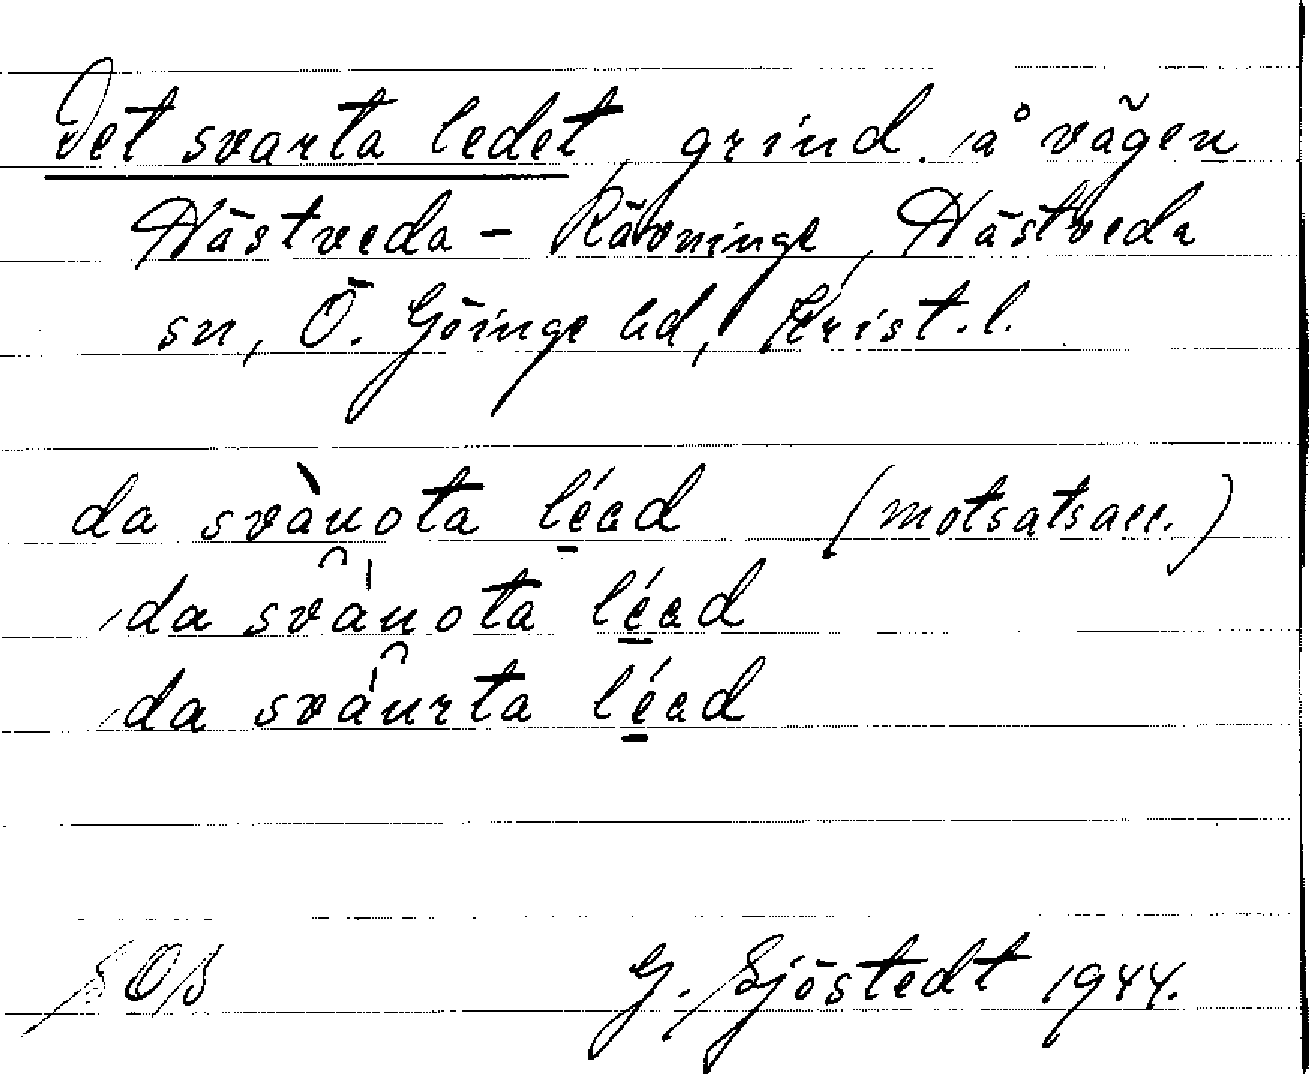 Det svarta ledet, grind å vägen
Hästveda - Rävninge, Hästveda
sn, Ö. Göinge hd, Krist. l.
da svàuota léad (motsatsacc.)
da sváuota léad
da sváurta léad
G. Sjöstedt 1944.